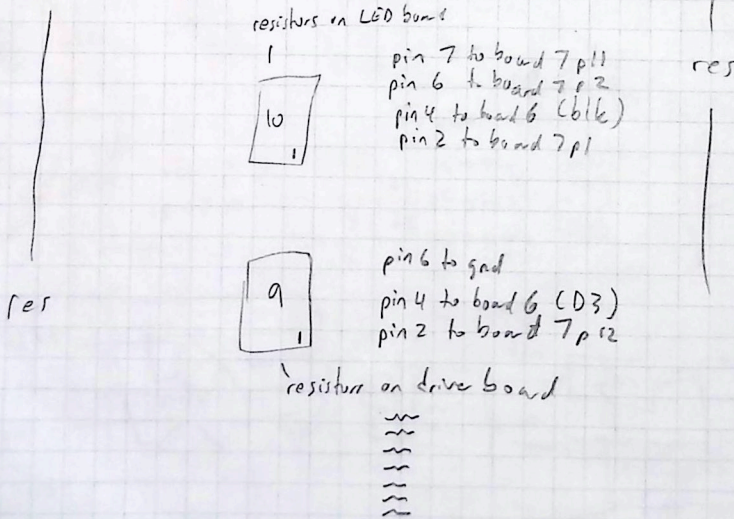 resistors on LED board
1
pin 7 to board 7 p11
pin 6 to board 7 p2
res
10
pin 4 to board 6 (blk)
1
pin 2 to board 7 p1
pin 6 to gnd
9
res
pin 4 to board 6 (D3)
1
pin 2 to board 7 p12
resistors on driver board